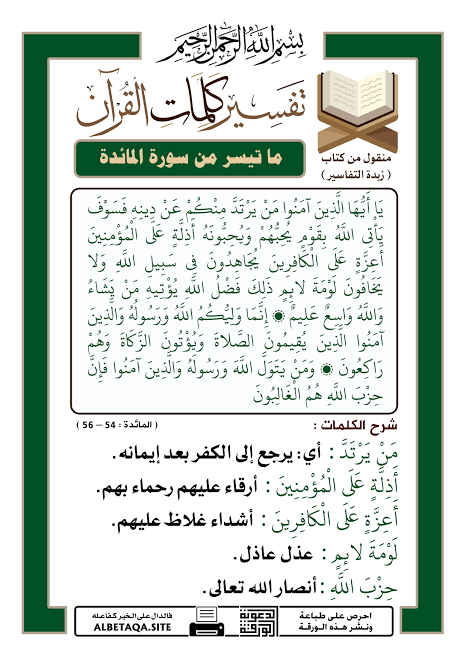 بسم الله الرحمن الرحيم
تفسير كلمات القرآن
منقول من كتاب
( زبدة التفاسير )
ما تيسر من سورة المائدة
يَا أَيُّهَا الَّذِينَ آمَنُوا مَنْ يَرْتَدَّ مِنْكُمْ عَنْ دِينِهِ فَسَوْفَ
يَأْتِي اللَّهُ بِقَوْمٍ يُحِبُّهُمْ وَيُحِبُّونَهُ أَذِلَّةٍ عَلَى الْمُؤْمِنِينَ
أَعِزَّةٍ عَلَى الْكَافِرِينَ يُجَاهِدُونَ فِي سَبِيلِ اللَّهِ وَلَا
يَخَافُونَ لَوْمَةَ لَائِمٍ ذَلِكَ فَضْلُ اللَّهِ يُؤْتِيهِ مَنْ يَشَاءُ
وَاللَّهُ وَاسِعٌ عَلِيمٌ ۞ إِنَّمَا وَلِيُّكُمُ اللَّهُ وَرَسُولُهُ وَالَّذِينَ
آمَنُوا الَّذِينَ يُقِيمُونَ الصَّلَاةَ وَيُؤْتُونَ الزَّكَاةَ وَهُمْ
رَاكِعُونَ ۞ وَمَنْ يَتَوَلَّ اللَّهَ وَرَسُولَهُ وَالَّذِينَ آمَنُوا فَإِنَّ
حِزْبَ اللَّهِ هُمُ الْغَالِبُونَ
شرح الكلمات : ( المائدة : 54 – 56 )
مَنْ يَرْتَدَّ : أي: يرجع إلى الكفر بعد إيمانه.
أَذِلَّةٍ عَلَى الْمُؤْمِنِينَ : أرقاء عليهم رحماء بهم.
أَعِزَّةٍ عَلَى الْكَافِرِينَ : أشداء غلاظ عليهم.
لَوْمَةَ لَائِمٍ : عذل عاذل.
حِزْبَ اللَّهِ : أنصار الله تعالى.
احرص على طباعة
ونشر هذه الورقة
الدعوية
الورقة
فالدال على الخير كفاعله
ALBETAQA.SITE